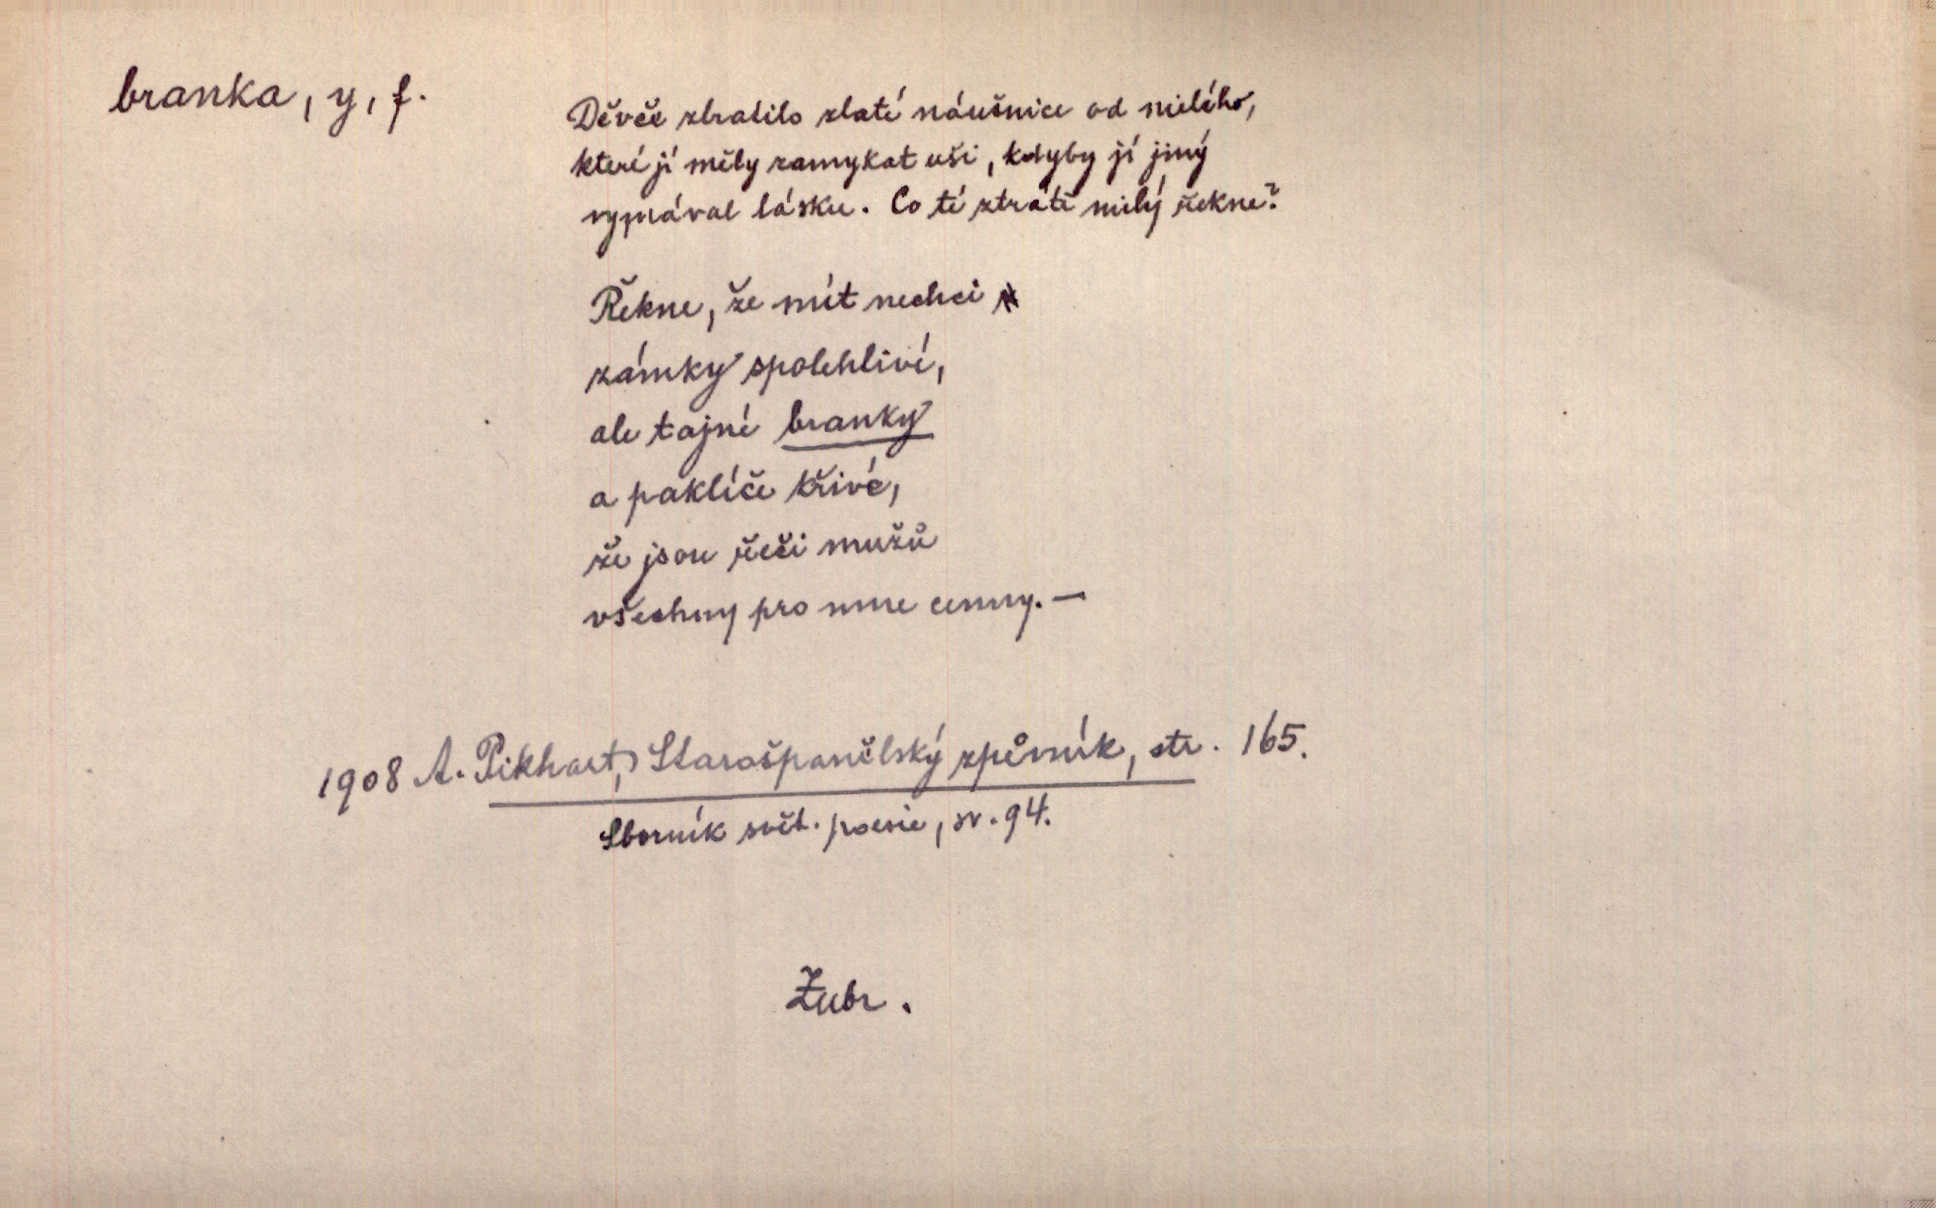 branka, y, f.
Děvče ztratilo zlaté náušnice od milého,
které jí měly zamykat uši, kdyby jí jiný
vyznával lásku. Co té ztrátě milý řekne?
Řekne, že mít nechci
zámky spolehlivé,
ale tajné branky
a paklíče křivé,
že jsou řeči mužů
všechny pro mne cenny. —
1908 A. Pikhart, Starošpanělský zpěvník, str. 165.
Sborník svět. poesie, sv. 94.
Žubr.